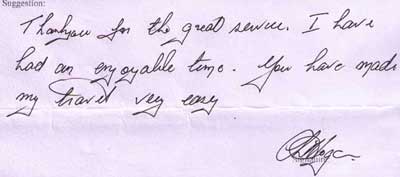 Suggestion:
Thankyou for the great service. I have
had an enjoyable time. You have made
my travel very easy